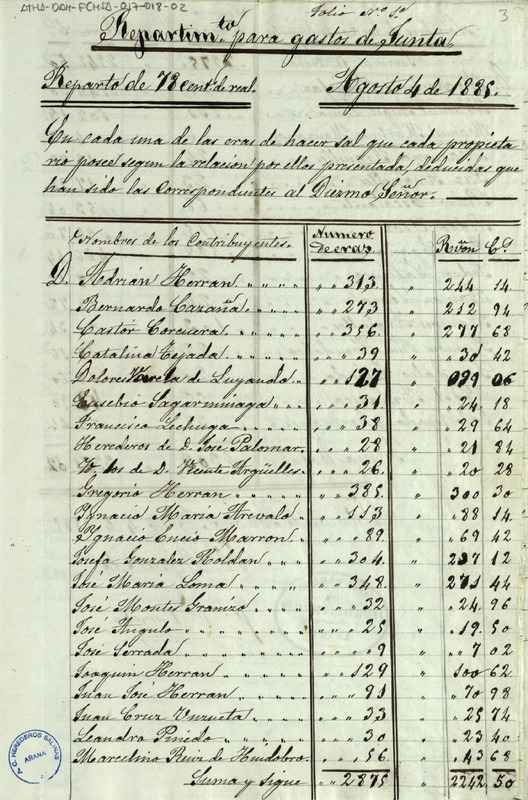 ATHA-DAH-FCHSA-017-018-02
Folio Nº 1º
3
Repartim.to para gastos de Junta
Reparto de 78 cent.s de real. Agosto 4 de 1885.
En cada una de las eras de hacer sal que cada propieta-
rio posee segun la relacion por ellos presentada, deducidas que
han sido las correspondientes al Diezmo, Señor.
Nombres de los Contribuyentes. Numero de eras. R.von C.s
D. Adrián Herran 313 244 14
Bernardo Cazaña 273 212 94
Castor Corcuera 356 277 68
Catalina Tejada 39 30 42
Dolores Varela de Luyando 127 099 06
Eusebio Sagarminaga 31 24 18
Francisco Lechuga 38 29 64
Herederos de D. José Palomar 28 21 84
Yd. los de D. Vicente Argüelles 26 20 28
Gregorio Herran 385 300 30
Ygnacio Maria Arevalo 113 88 14
Ygnacio Encio Marron 89 69 42
Josefa Gonzalez Roldan 304 237 12
José Maria Loma 348 271 44
José Montes Granizo 32 24 96
José Angulo 25 19 50
José Serrada 9 7 02
Joaquin Herran 129 100 62
Juan Jose Herran 91 70 98
Juan Cruz Unzueta 33 25 74
Leandro Pinedo 30 23 40
Marcelino Ruiz de Huidobro 56 43 68
Suma y sigue 2875 2242 50
C. HEREDEROS SALINAS
AÑANA